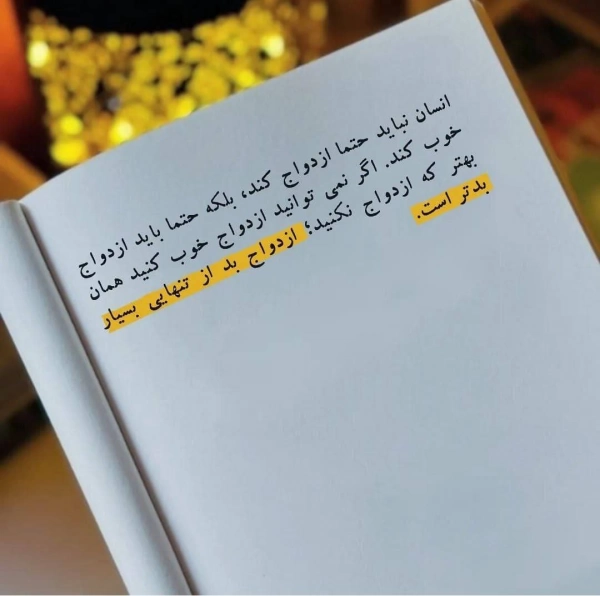 انسان نباید حتما ازدواج کند، بلکه حتما باید ازدواج
خوب کند. اگر نمی توانید ازدواج خوب کنید همان
بهتر که ازدواج نکنید؛ ازدواج بد از تنهایی بسیار
بدتر است.